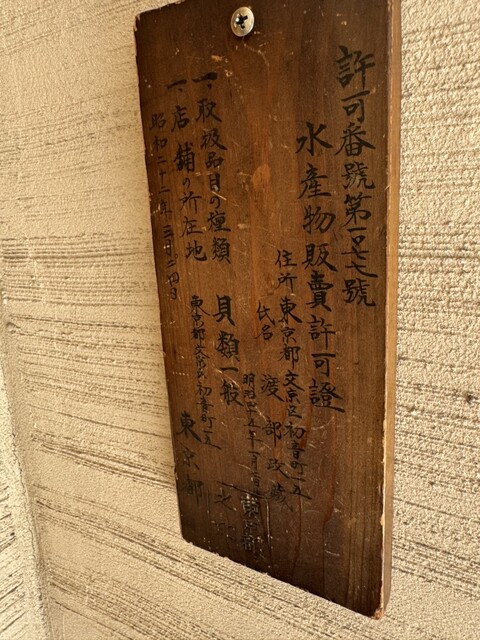 許可番號第一四七七號
水産物販賣許可證
住所 東京都文京区初音町一五
氏名 渡部政蔵
明治四十五年一月
一、取扱品目の種類 貝類一般
一、店舗の所在地 東京都文京区初音町一五
昭和二十二年三月二四日
東京都